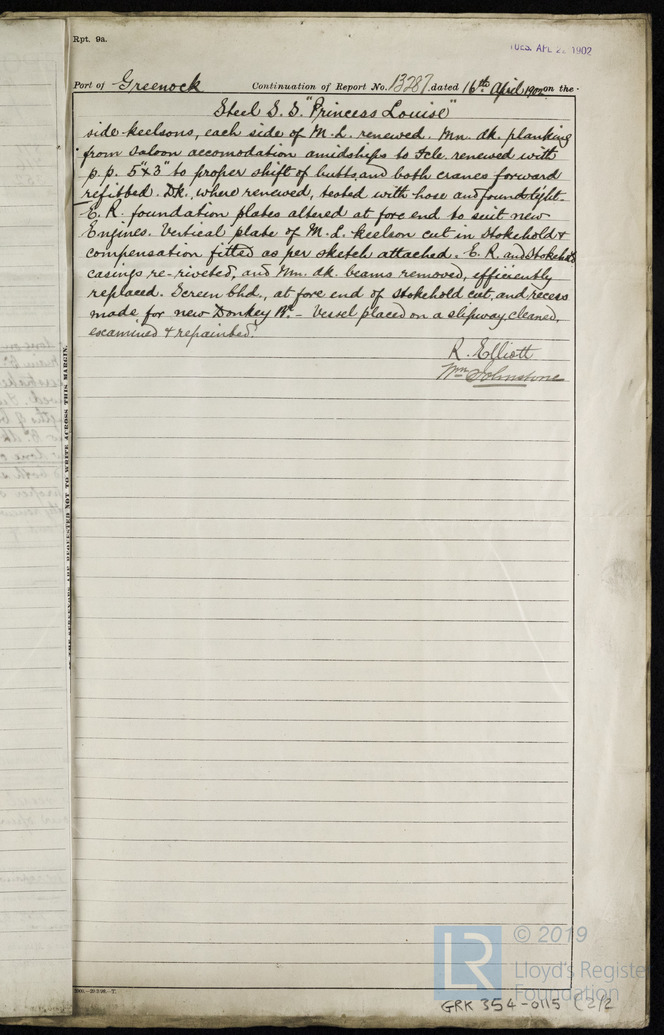 Rpt. 9a.
TUES. APL 22 1902
Port of Greenock Continuation of Report No. 13287 dated 16th April 1902 on the
Steel S.S "Princess Louise"
side keelsons, each side of M.L. renewed. Mn. dk. planking
from saloon accomodation amidships to Fcle. renewed with
p.p. 5"x3" to proper shift of butts, and both cranes forward
refitted. Dk., where renewed, tested with hose and found tight.
E.R. foundation plates altered at fore end to suit new
Engines. Vertical plate of M.L. keelson cut in Stokehold &
compensation fitted as per sketch attached. E.R. and Stokehold
casings re-riveted, and Mn. dk. beams removed, efficiently
replaced. Screen bhd., at fore end of stokehold cut, and recess
made for new Donkey Br. - Vessel placed on a slipway, cleaned,
examined & repainted.
R. Elliott
Wm Johnstone
THE SURVEYORS ARE REQUESTED NOT TO WRITE ACROSS THIS MARGIN.
LR © 2019
Lloyd's Register
Foundation
GRK 354-0115 (2/2